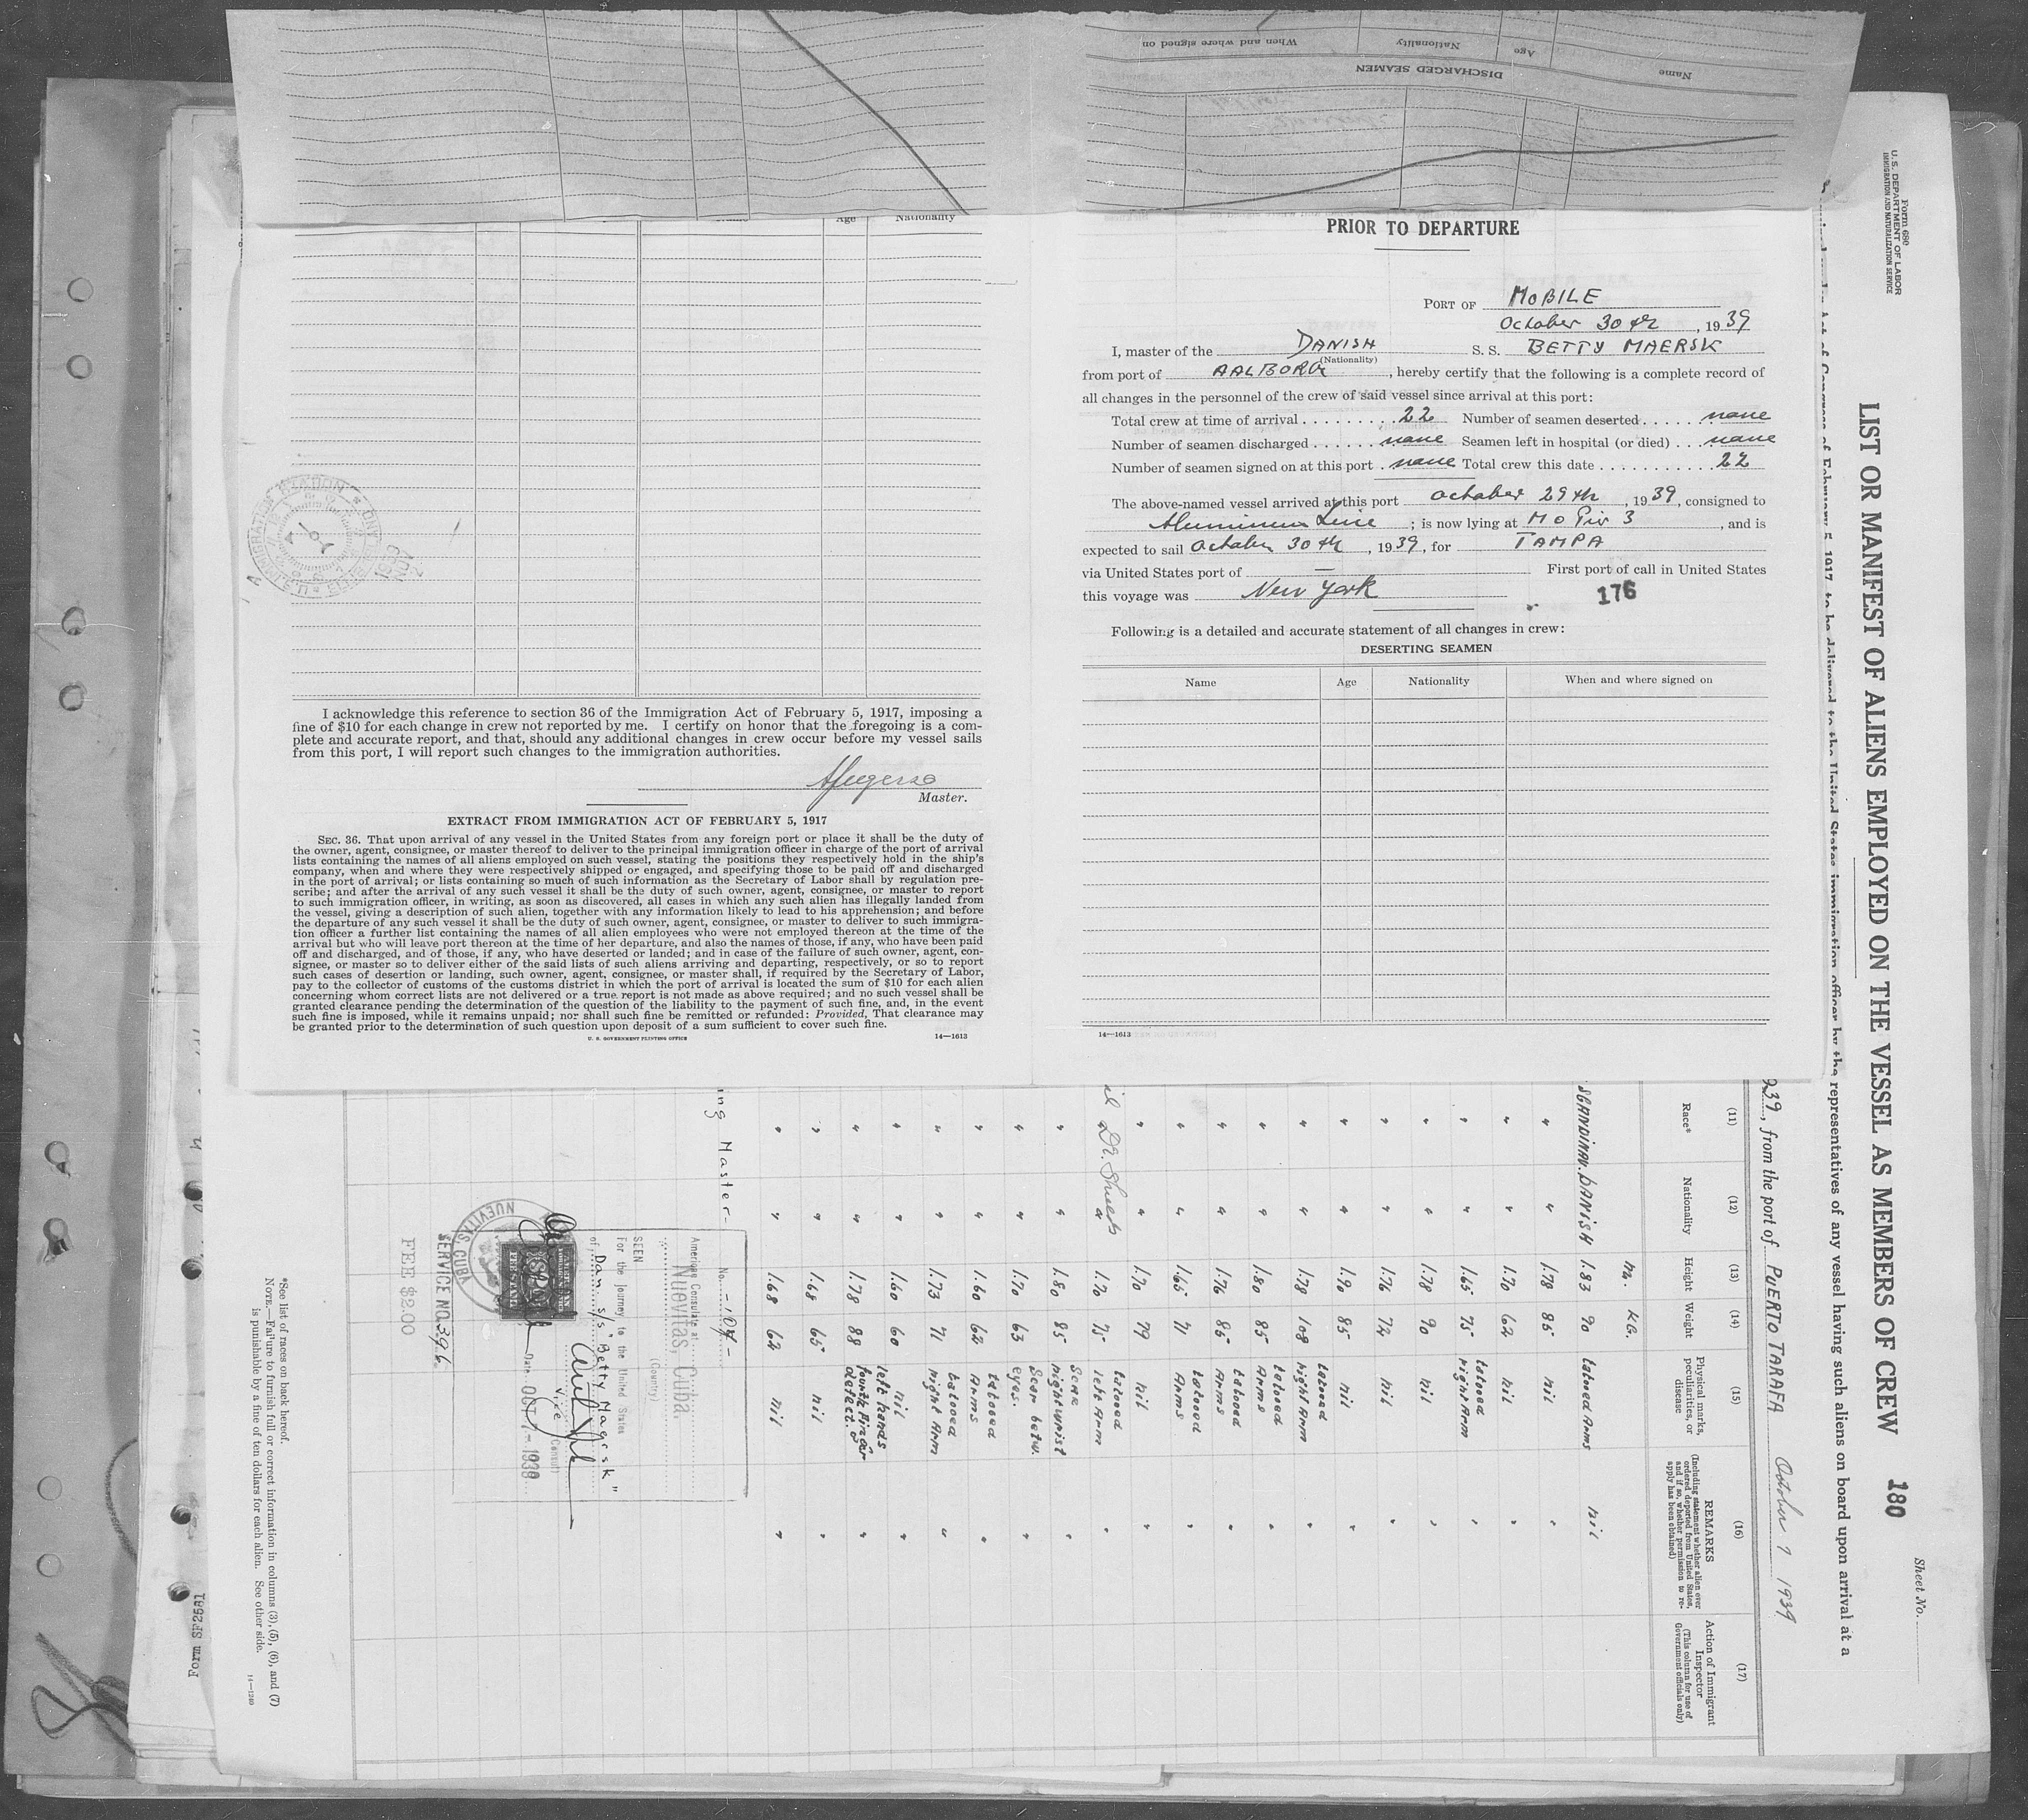 When and where signed on
Nationality
Age
Name
DISCHARGED SEAMEN
Age
Nationality
I acknowledge this reference to section 36 of the Immigration Act of February 5, 1917, imposing a
fine of $10 for each change in crew not reported by me. I certify on honor that the foregoing is a com-
plete and accurate report, and that, should any additional changes in crew occur before my vessel sails
from this port, I will report such changes to the immigration authorities.
Master.
EXTRACT FROM IMMIGRATION ACT OF FEBRUARY 5, 1917
SEC. 36. That upon arrival of any vessel in the United States from any foreign port or place it shall be the duty of
the owner, agent, consignee, or master thereof to deliver to the principal immigration officer in charge of the port of arrival
lists containing the names of all aliens employed on such vessel, stating the positions they respectively hold in the ship's
company, when and where they were respectively shipped or engaged, and specifying those to be paid off and discharged
in the port of arrival; or lists containing so much of such information as the Secretary of Labor shall by regulation pre-
scribe; and after the arrival of any such vessel it shall be the duty of such owner, agent, consignee, or master to report
to such immigration officer, in writing, as soon as discovered, all cases in which any such alien has illegally landed from
the vessel, giving a description of such alien, together with any information likely to lead to his apprehension; and before
the departure of any such vessel it shall be the duty of such owner, agent, consignee, or master to deliver to such immigra-
tion officer a further list containing the names of all alien employees who were not employed thereon at the time of the
arrival but who will leave port thereon at the time of her departure, and also the names of those, if any, who have been paid
off and discharged, and of those, if any, who have deserted or landed; and in case of the failure of such owner, agent, con-
signee, or master so to deliver either of the said lists of such aliens arriving and departing, respectively, or so to report
such cases of desertion or landing, such owner, agent, consignee, or master shall, if required by the Secretary of Labor,
pay to the collector of customs of the customs district in which the port of arrival is located the sum of $10 for each alien
concerning whom correct lists are not delivered or a true report is not made as above required; and no such vessel shall be
granted clearance pending the determination of the question of the liability to the payment of such fine, and, in the event
such fine is imposed, while it remains unpaid; nor shall such fine be remitted or refunded: Provided, That clearance may
be granted prior to the determination of such question upon deposit of a sum sufficient to cover such fine.
U. S. GOVERNMENT PRINTING OFFICE 14—1613
PRIOR TO DEPARTURE
PORT OF MOBILE
October 30th, 1939
I, master of the DANISH S. S. BETTY MAERSK
(Nationality)
from port of AALBORG, hereby certify that the following is a complete record of
all changes in the personnel of the crew of said vessel since arrival at this port:
Total crew at time of arrival . . . . . . . . . 22 Number of seamen deserted . . . . . . none
Number of seamen discharged . . . . . . none Seamen left in hospital (or died) . . . none
Number of seamen signed on at this port . none Total crew this date . . . . . . . . . . . 22
The above-named vessel arrived at this port October 29th, 1939, consigned to
Aluminum Line ; is now lying at Mo Pier 3, and is
expected to sail October 30th, 1939, for TAMPA
via United States port of — First port of call in United States
this voyage was New York 176
Following is a detailed and accurate statement of all changes in crew:
DESERTING SEAMEN
Name Age Nationality When and where signed on
14—1613
Form 680
U. S. DEPARTMENT OF LABOR
IMMIGRATION AND NATURALIZATION SERVICE
Sheet No.
LIST OR MANIFEST OF ALIENS EMPLOYED ON THE VESSEL AS MEMBERS OF CREW 180
representatives of any vessel having such aliens on board upon arrival at a
939, from the port of PUERTO TARAFA October 7 1939
(11) (12) (13) (14) (15) (16) (17)
Race*
Nationality
Height
Weight
Physical marks, peculiarities, or disease
REMARKS
(Including statement whether alien ever ordered deported from United States, and if so, whether permission to re-apply has been obtained)
Action of Immigrant Inspector
(This column for use of Government officials only)
m. KG.
SCANDINAV. DANISH 1.83 90 tatooed Arms nil
" " 1.78 85 nil "
" " 1.70 62 nil "
" " 1.65 75 tatooed right Arm "
" " 1.78 90 nil "
" " 1.76 72 nil "
" " 1.90 85 nil "
" " 1.78 108 tatooed right Arm "
" " 1.80 85 tatooed Arms "
" " 1.76 85 tatooed Arms "
" " 1.65 71 tatooed Arms "
" " 1.70 79 nil "
" 1.70 75 tatooed left Arm "
" " 1.80 85 Scar right wrist "
" " 1.70 63 Scar betw. eyes. "
" " 1.60 62 tatooed Arms "
" " 1.73 71 tatooed right Arm "
" " 1.60 60 nil "
" " 1.78 88 left hands fourth finger defect. "
" " 1.68 65 nil "
" " 1.68 62 nil "
ing Master-
No. -107-
American Consulate at
Nuevitas, Cuba.
(Country)
SEEN
For the journey to the United States
of Dan. s/s "Betty Maersk"
Vice Consul
Date OCT 7- 1939
NUEVITAS, CUBA
SERVICE NO. 396
FEE $2.00
*See list of races on back hereof.
NOTE.—Failure to furnish full or correct information in columns (3), (5), (6), and (7)
is punishable by a fine of ten dollars for each alien. See other side.
14—1240
Form SP2581